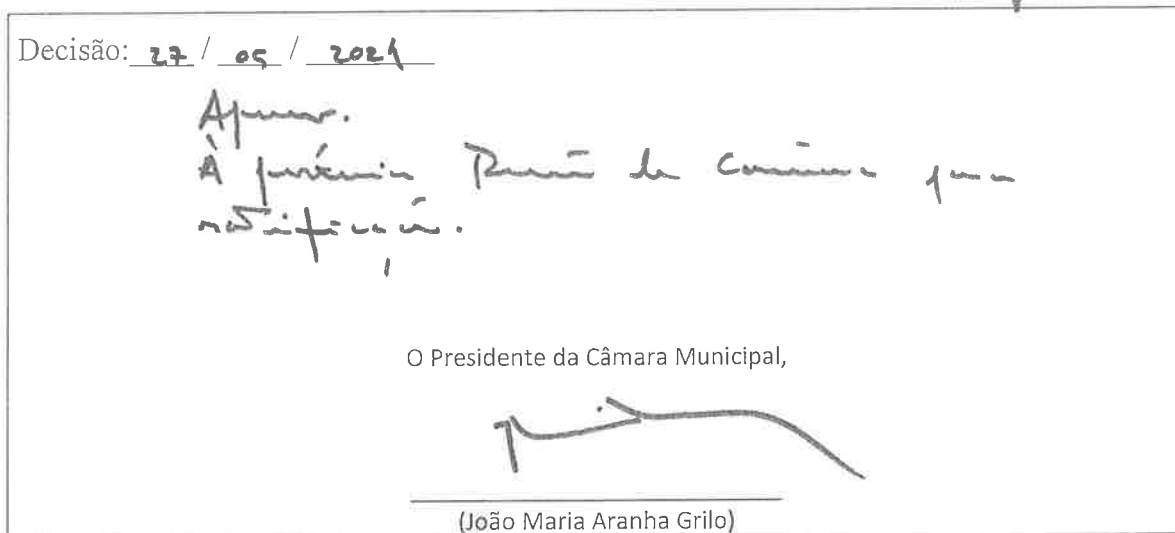 Decisão: 27 / 05 / 2021
Aprovo.
À próxima Reunião de Câmara para
ratificação.
O Presidente da Câmara Municipal,
(João Maria Aranha Grilo)